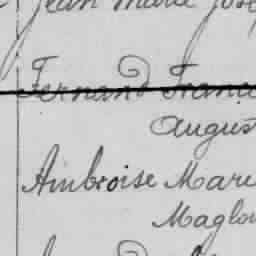 Jean Marie Jose
Fernand Franc
Augus
Ambroise Mari
Maglo